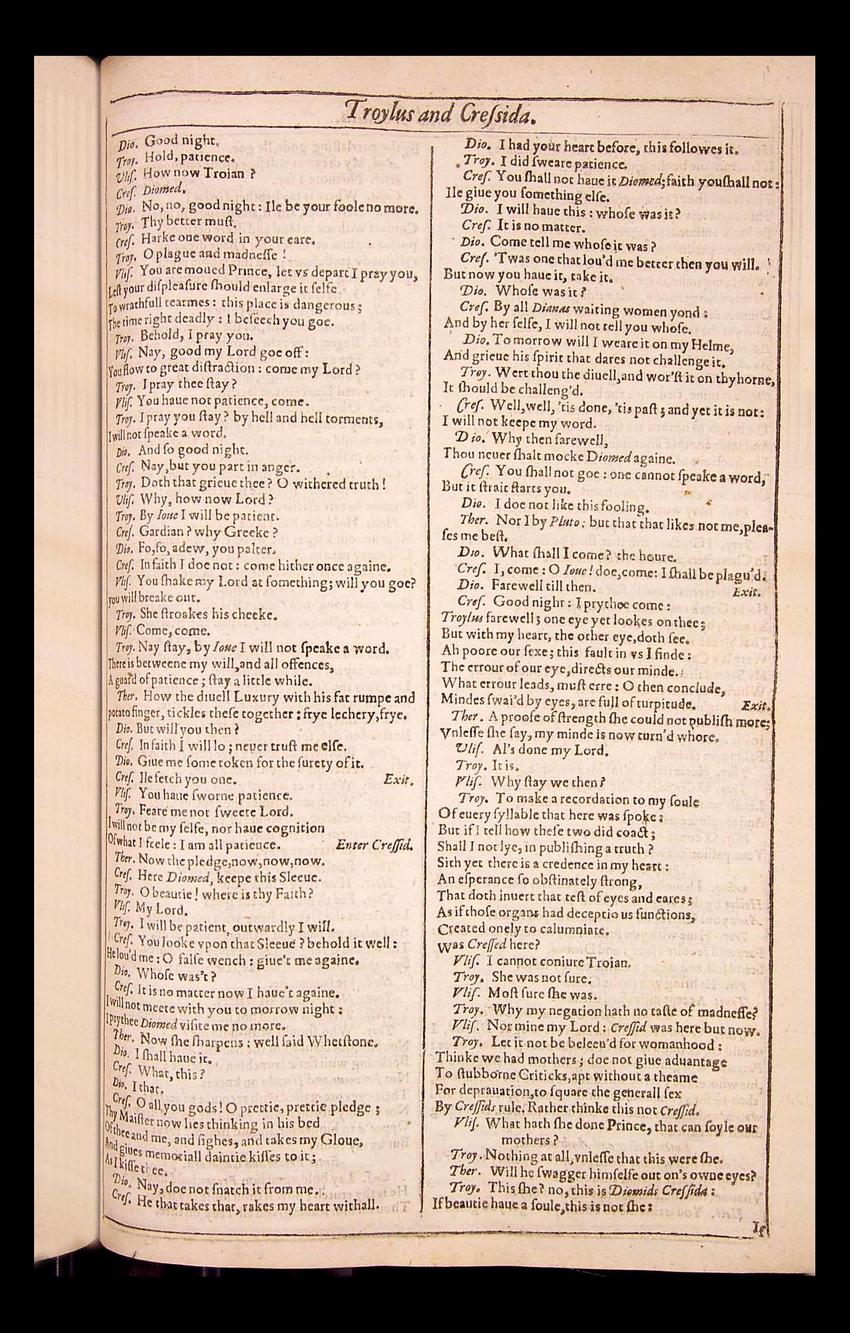 Troylus and Creſsida.
Dio. Good night.
Troy. Hold, patience.
Vliſ. How now Troian ?
Creſ. Diomed.
Dio. No, no, good night : Ile be your foole no more.
Troy. Thy better muſt.
Creſ. Harke one word in your eare.
Troy. O plague and madneſſe !
Vliſ. You are moued Prince, let vs depart I pray you,
Leſt your diſpleaſure ſhould enlarge it ſelfe
To wrathfull tearmes : this place is dangerous ;
The time right deadly : I beſeech you goe.
Troy. Behold, I pray you.
Vliſ. Nay, good my Lord goe off :
You flow to great diſtraction : come my Lord ?
Troy. I pray thee ſtay ?
Vliſ. You haue not patience, come.
Troy. I pray you ſtay ? by hell and hell torments,
I will not ſpeake a word.
Dio. And ſo good night.
Creſ. Nay, but you part in anger.
Troy. Doth that grieue thee ? O withered truth !
Vliſ. Why, how now Lord ?
Troy. By Ioue I will be patient.
Creſ. Gardian ? why Greeke ?
Dio. Fo, fo, adew, you palter.
Creſ. In faith I doe not : come hither once againe.
Vliſ. You ſhake my Lord at ſomething ; will you goe?
you will breake out.
Troy. She ſtroakes his cheeke.
Vliſ. Come, come.
Troy. Nay ſtay, by Ioue I will not ſpeake a word.
There is betweene my will, and all offences,
A guard of patience ; ſtay a little while.
Ther. How the diuell Luxury with his fat rumpe and
potato finger, tickles theſe together ; frye lechery, frye.
Dio. But will you then ?
Creſ. In faith I will lo ; neuer truſt me elſe.
Dio. Giue me ſome token for the ſurety of it.
Creſ. Ile fetch you one. Exit.
Vliſ. You haue ſworne patience.
Troy. Feare me not ſweete Lord.
I will not be my ſelfe, nor haue cognition
Of what I feele : I am all patience. Enter Creſſid.
Ther. Now the pledge, now, now, now.
Creſ. Here Diomed, keepe this Sleeue.
Troy. O beautie ! where is thy Faith ?
Vliſ. My Lord.
Troy. I will be patient, outwardly I will.
Creſ. You looke vpon that Sleeue ? behold it well :
He lou'd me : O falſe wench : giue't me againe.
Dio. Whoſe was't ?
Creſ. It is no matter now I haue't againe.
I will not meete with you to morrow night :
I prythee Diomed viſite me no more.
Ther. Now ſhe ſharpens : well ſaid Whetſtone.
Dio. I ſhall haue it.
Creſ. What, this ?
Dio. I that.
Creſ. O all you gods ! O prettie, prettie pledge ;
Thy Maiſter now lies thinking in his bed
Of thee and me, and ſighes, and takes my Gloue,
And giues memoriall daintie kiſſes to it ;
As I kiſſe thee.
Dio. Nay, doe not ſnatch it from me.
Creſ. He that takes that, rakes my heart withall.
Dio. I had your heart before, this followes it.
Troy. I did ſweare patience.
Creſ. You ſhall not haue it Diomed; faith you ſhall not :
Ile giue you ſomething elſe.
Dio. I will haue this : whoſe was it ?
Creſ. It is no matter.
Dio. Come tell me whoſe it was ?
Creſ. 'Twas one that lou'd me better then you will.
But now you haue it, take it.
Dio. Whoſe was it ?
Creſ. By all Dianas waiting women yond :
And by her ſelfe, I will not tell you whoſe.
Dio. To morrow will I weare it on my Helme,
And grieue his ſpirit that dares not challenge it.
Troy. Wert thou the diuell, and wor'ſt it on thy horne,
It ſhould be challeng'd.
Creſ. Well, well, 'tis done, 'tis paſt ; and yet it is not :
I will not keepe my word.
Dio. Why then farewell,
Thou neuer ſhalt mocke Diomed againe.
Creſ. You ſhall not goe : one cannot ſpeake a word,
But it ſtrait ſtarts you.
Dio. I doe not like this fooling.
Ther. Nor I by Pluto : but that that likes not me, plea-
ſes me beſt.
Dio. What ſhall I come ? the houre.
Creſ. I, come : O Ioue ! doe, come : I ſhall be plagu'd.
Dio. Farewell till then. Exit.
Creſ. Good night : I prythee come :
Troylus farewell ; one eye yet lookes on thee ;
But with my heart, the other eye, doth ſee.
Ah poore our ſexe ; this fault in vs I finde :
The errour of our eye, directs our minde.
What errour leads, muſt erre : O then conclude,
Mindes ſwai'd by eyes, are full of turpitude. Exit.
Ther. A proofe of ſtrength ſhe could not publiſh more;
Vnleſſe ſhe ſay, my minde is now turn'd whore.
Vliſ. Al's done my Lord.
Troy. It is.
Vliſ. Why ſtay we then ?
Troy. To make a recordation to my ſoule
Of euery ſyllable that here was ſpoke :
But if I tell how theſe two did coact ;
Shall I not lye, in publiſhing a truth ?
Sith yet there is a credence in my heart :
An eſperance ſo obſtinately ſtrong,
That doth inuert that teſt of eyes and eares ;
As if thoſe organs had deceptious functions,
Created onely to calumniate.
Was Creſſed here?
Vliſ. I cannot coniure Troian.
Troy. She was not ſure.
Vliſ. Moſt ſure ſhe was.
Troy. Why my negation hath no taſte of madneſſe?
Vliſ. Nor mine my Lord : Creſſid was here but now.
Troy. Let it not be beleeu'd for womanhood :
Thinke we had mothers ; doe not giue aduantage
To ſtubborne Criticks, apt without a theame
For deprauation, to ſquare the generall ſex
By Creſſids rule. Rather thinke this not Creſſid.
Vliſ. What hath ſhe done Prince, that can ſoyle our
mothers ?
Troy. Nothing at all, vnleſſe that this were ſhe.
Ther. Will he ſwagger himſelfe out on's owne eyes?
Troy. This ſhe ? no, this is Diomids Creſſida :
If beautie haue a ſoule, this is not ſhe :
If